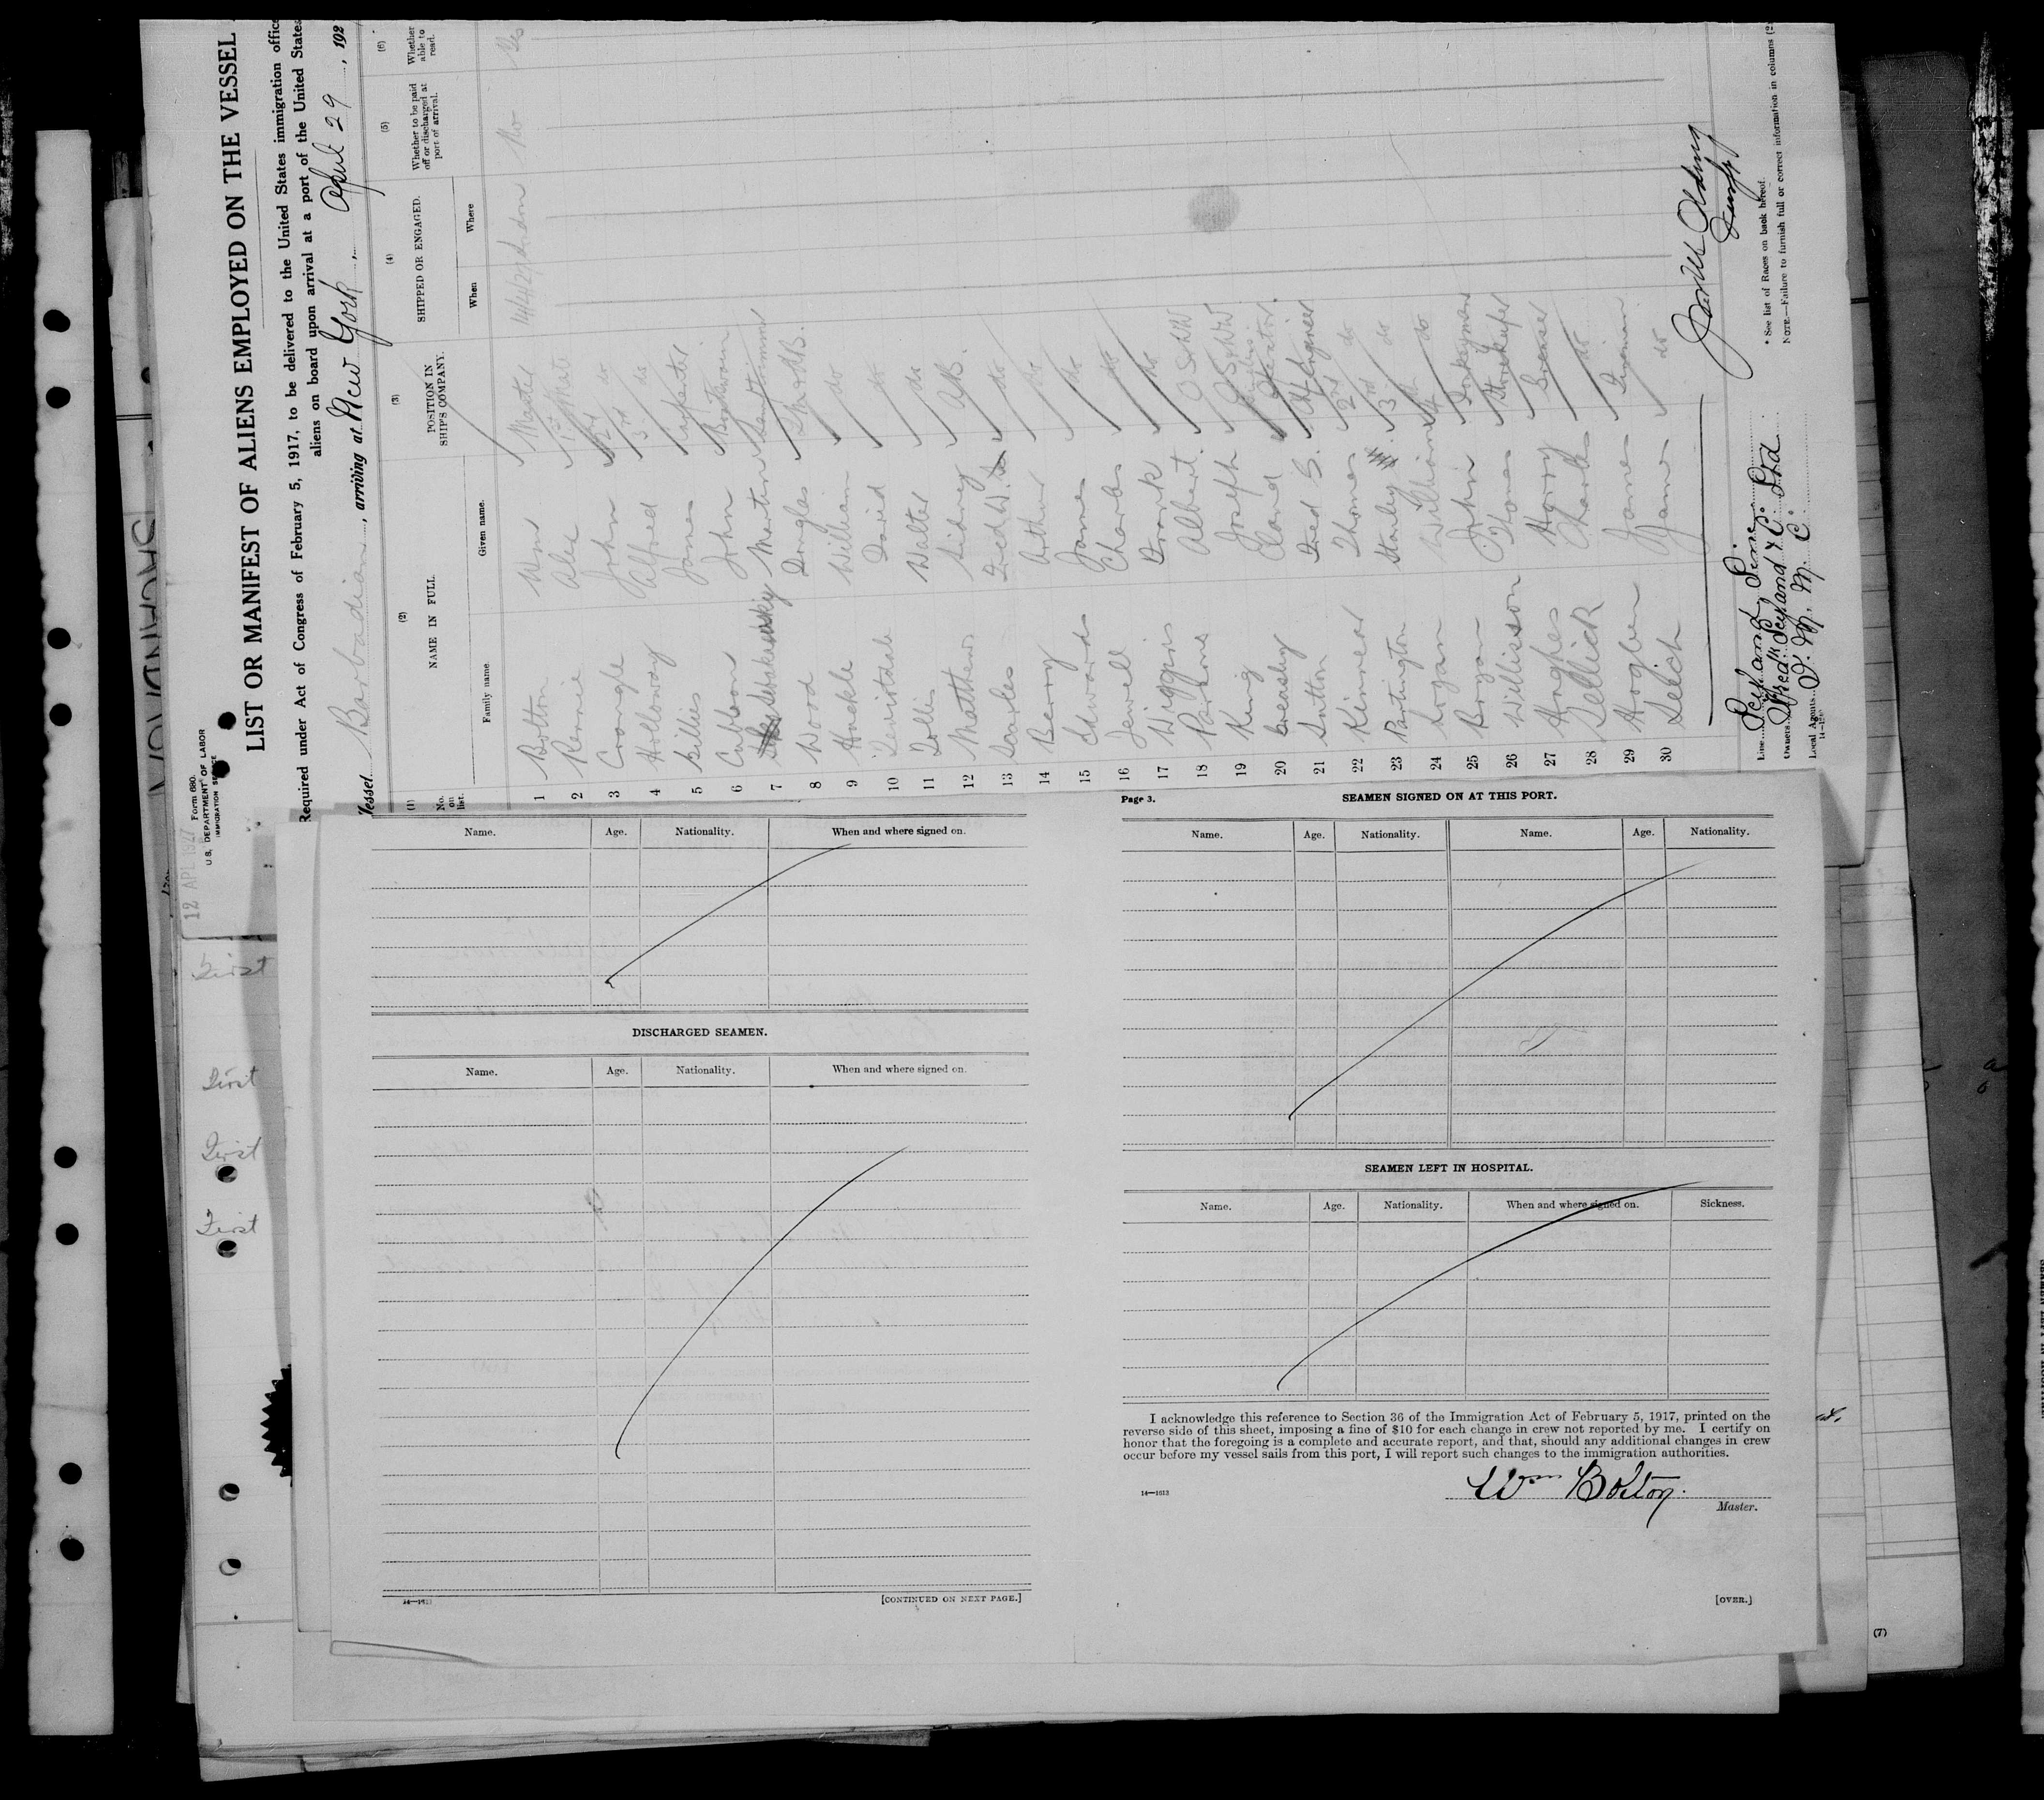 12 APL 1927
Form 680.
U. S. DEPARTMENT OF LABOR
IMMIGRATION SERVICE
LIST OR MANIFEST OF ALIENS EMPLOYED ON THE VESSEL
Required under Act of Congress of February 5, 1917, to be delivered to the United States immigration
aliens on board upon arrival at a port of the United States
Vessel Barbadian, arriving at New York, April 29, 192
(1) (2) (3) (4) (5) (6)
No. on list. NAME IN FULL. POSITION IN SHIP'S COMPANY. SHIPPED OR ENGAGED. Whether to be paid off or discharged at port of arrival. Whether able to read.
Family name. Given name. When Where
1 Bolton Wm Master 14/4/27 London No Yes
2 Rennie Alec 1st Mate
3 Crangle John 2nd do
4 Holloway Alfred 3rd do
5 Gillies James Carpenter
6 John Boatswain
7 Martin Lamptrimmer
8 Wood Douglas
9 Honckle William do
10 David do
11 Tolle Walter do
12 Matthews Sidney A.B.
13 Searles Fred W. do
14 Berry Arthur do
15 Edwards James do
16 Jewell Charles do
17 Wiggins Frank do
18 Parsons Albert O.S.
19 King Joseph O.S.
20 Greasley Claud Operator
21 Sutton Fred S. Ch Engineer
22 Kinnear Thomas 2nd do
23 Partington Stanley 3rd do
24 Logan William 4th do
25 Bryan John Donkeyman
26 Willisson Thomas Storekeeper
27 Hughes Harry Greaser
28 Sellick Charles do
29 Hogben James Fireman
30 Leich James do
Line Leyland Line
Owners Fredk Leyland & Co Ltd
Local Agents I. M. M. Co
14—1240
* See list of Races on back hereof.
NOTE.—Failure to furnish full or correct information in columns
First
First
First
First
Name. Age. Nationality. When and where signed on.
DISCHARGED SEAMEN.
Name. Age. Nationality. When and where signed on.
14—1613
[CONTINUED ON NEXT PAGE.]
Page 3.
SEAMEN SIGNED ON AT THIS PORT.
Name. Age. Nationality. Name. Age. Nationality.
SEAMEN LEFT IN HOSPITAL.
Name. Age. Nationality. When and where signed on. Sickness.
I acknowledge this reference to Section 36 of the Immigration Act of February 5, 1917, printed on the
reverse side of this sheet, imposing a fine of $10 for each change in crew not reported by me. I certify on
honor that the foregoing is a complete and accurate report, and that, should any additional changes in crew
occur before my vessel sails from this port, I will report such changes to the immigration authorities.
14—1613
Wm Bolton.
Master.
[OVER.]
(7)